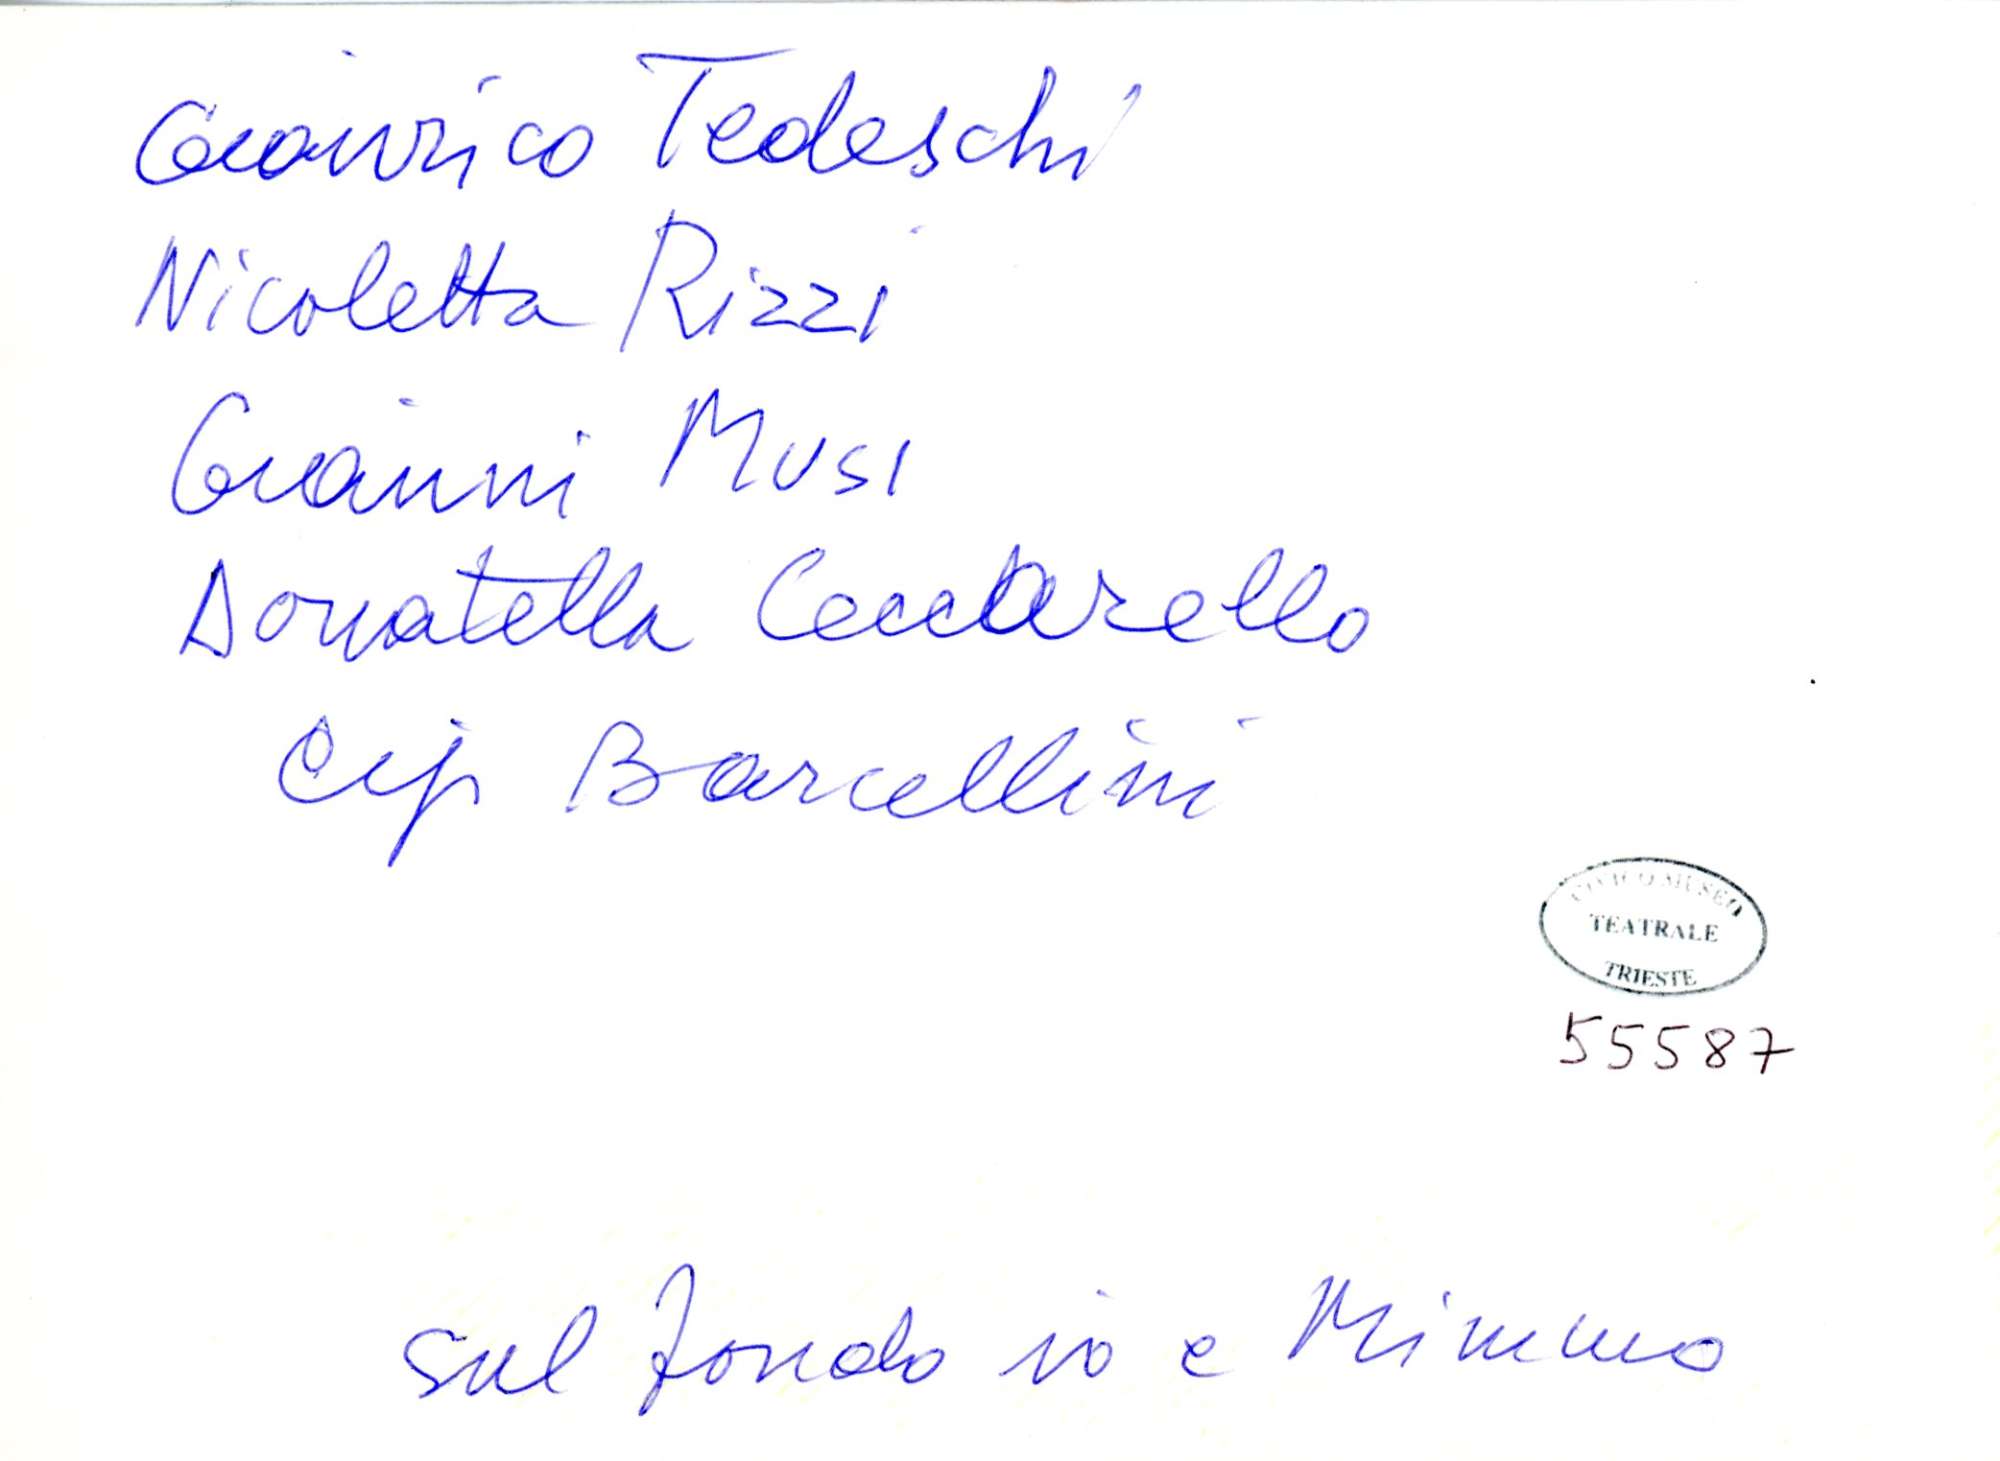 Gianrico Tedeschi
Nicoletta Rizzi
Gianni Musi
Donatella Ceccarello
Cip Barcellini
CIVICO MUSEO
TEATRALE
TRIESTE
55587
sul fondo io e Mimmo